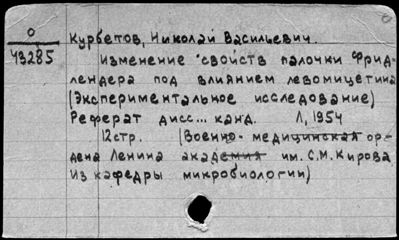 О
43285
Курбетов, Николай Васильевич.
Изменение свойств палочки Фрид-
лендера под влиянием левомицетина
(Экспериментальное исследование)
Реферат дисс... канд. Л, 1954
12стр. (Военно- медицинская ор-
дена Ленина академия им. С.М. Кирова.
Из кафедры микробиологии)